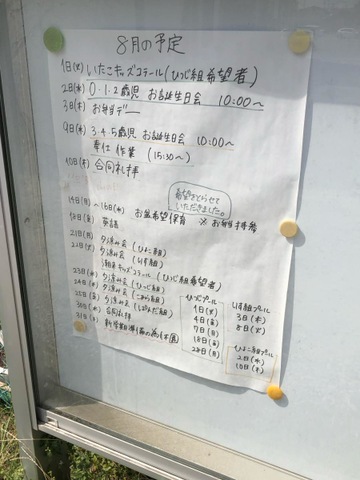 8月の予定
1日(火) いたこキッズスクール(ひつじ組希望者)
2日(水) 0.1.2歳児 お誕生日会 10:00〜
3日(木) お弁当デー
9日(水) 3.4.5歳児 お誕生日会 10:00〜
奉仕作業 (15:30〜)
10日(木) 合同礼拝
希望をとらせて
いただきました。
14日(月)〜16日(水) お盆希望保育 ※お弁当持参
18日(金) 英語
21日(月) 夕涼み会 (ひよこ組)
22日(火) 夕涼み会 (りす組)
潮来キッズスクール (ひつじ組希望者)
23日(水) 夕涼み会 (ひつじ組)
24日(木) 夕涼み会 (こひつじ組)
25日(金) 夕涼み会
30日(水) 合同礼拝
31日(木) 新学期準備の為休園
ひつじプール
1日(火)
4日(金)
7日(月)
18日(金)
28日(月)
りす組プール
3日(木)
8日(火)
ひよこ組プール
2日(水)
10日(木)